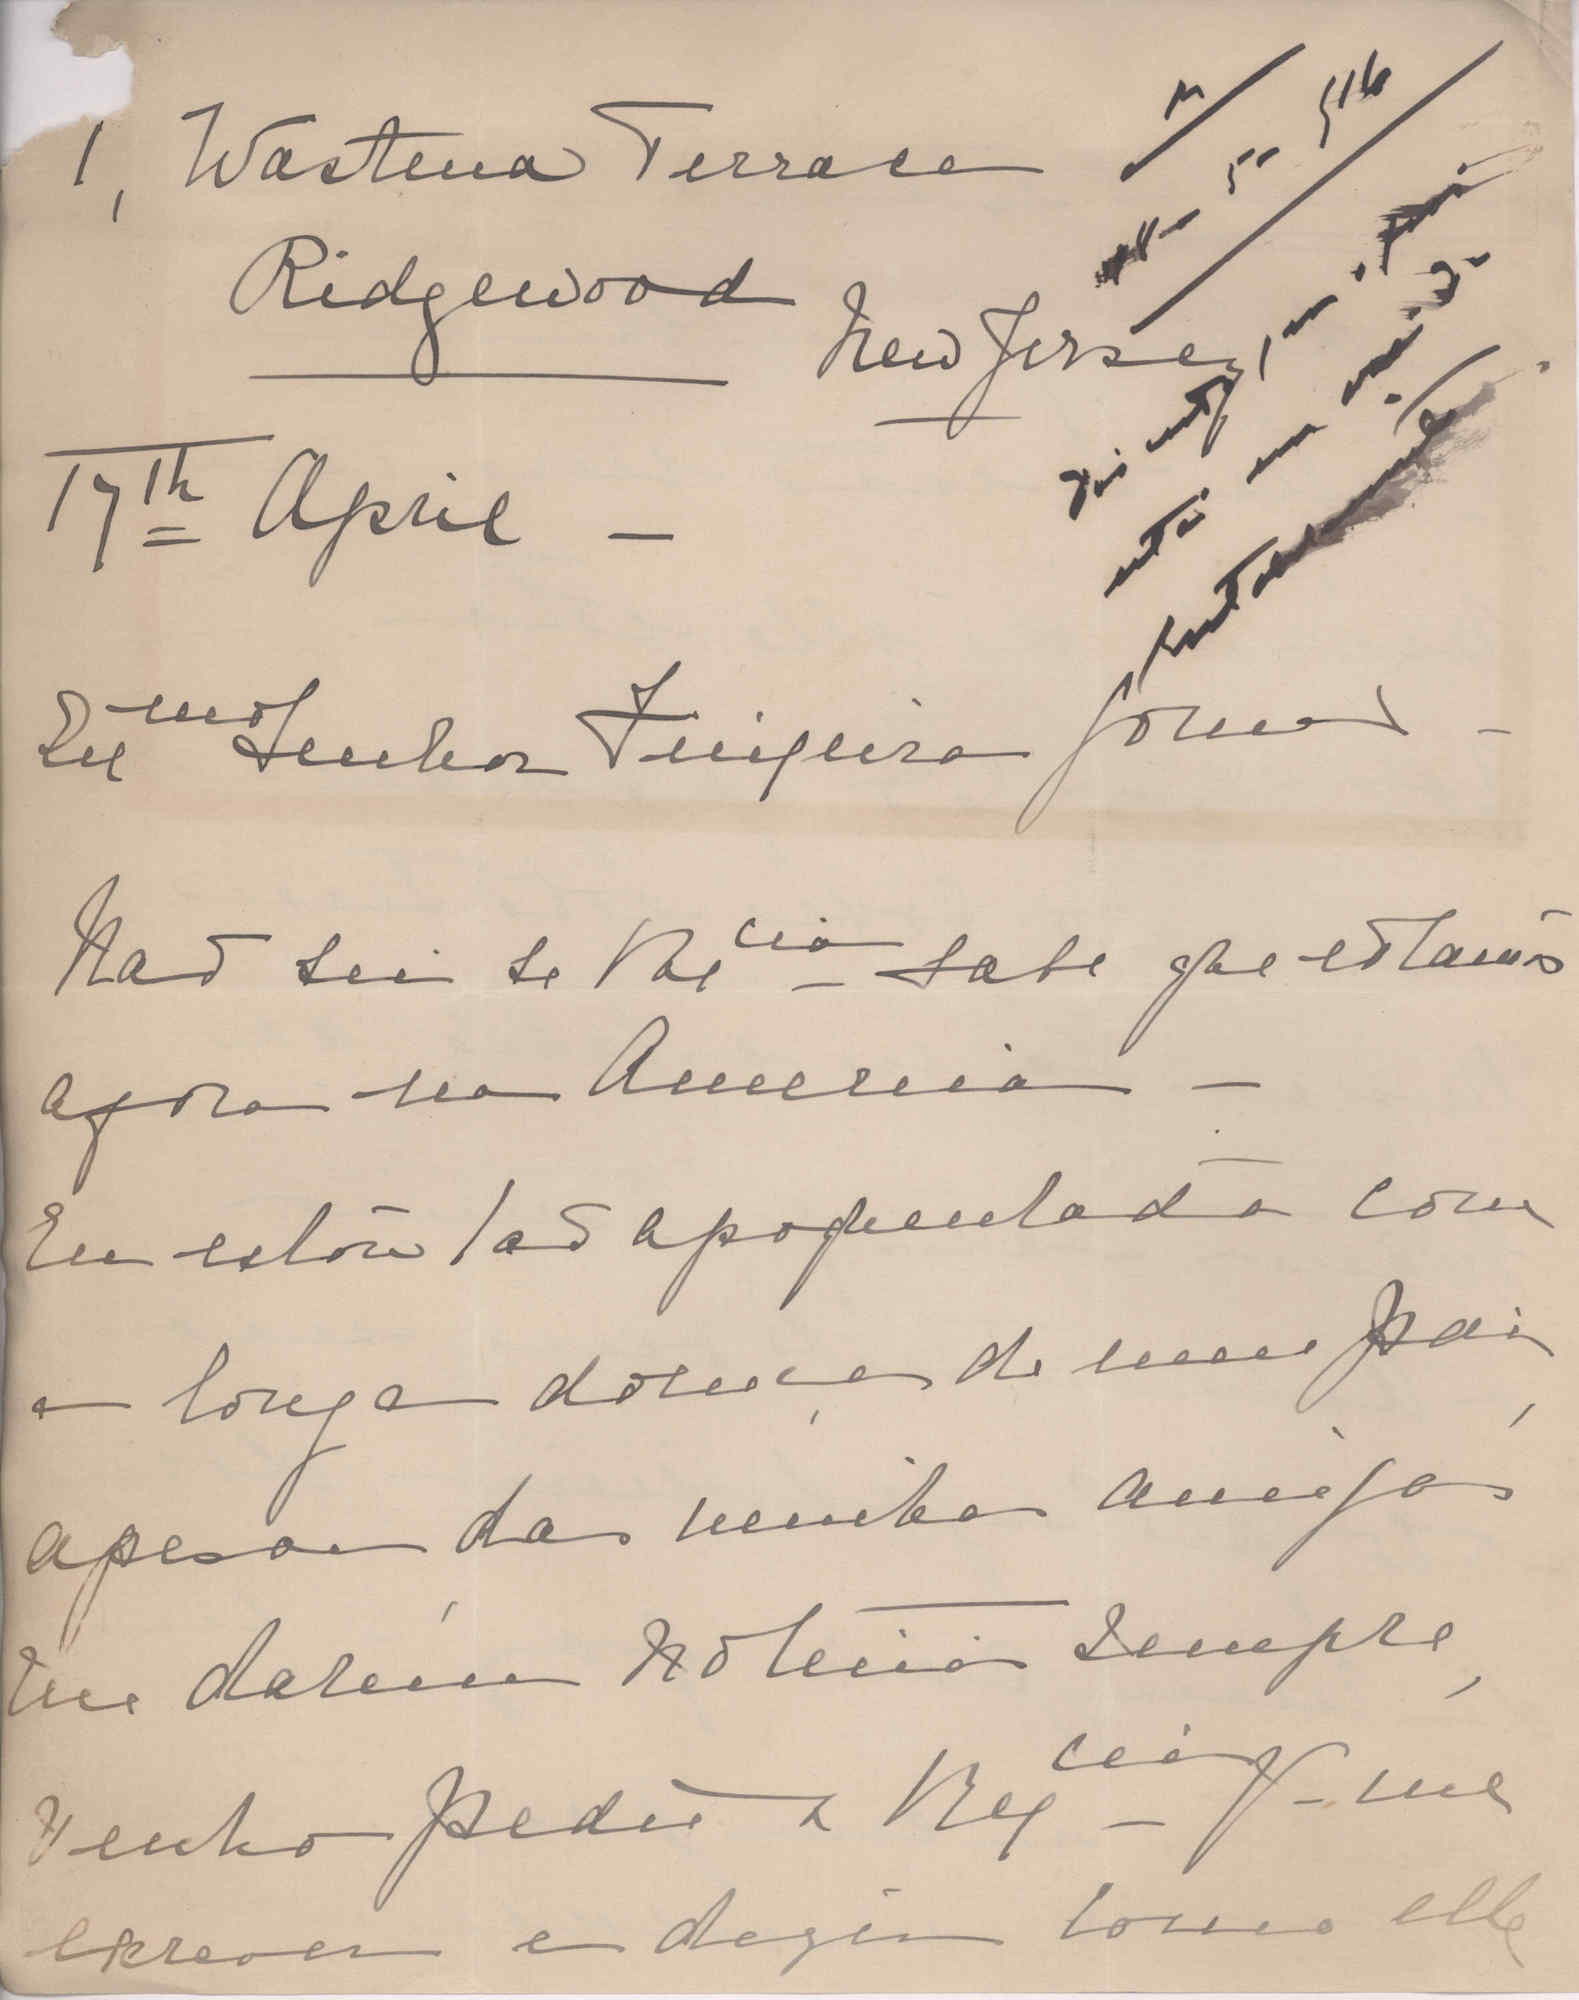 1, Wastena Terrace
Ridgewood
New Jersey
17th April –
Exmo Senhor Teixeira Gomes –
Não sei se V Excia sabe que estamos
agora na America –
Eu estou tão apoquentada com
a longa doença de meu Pai,
apesar das minhas amigas
me darem noticias sempre,
Venho pedir a V Excia p. me
escrever e dizer como elle